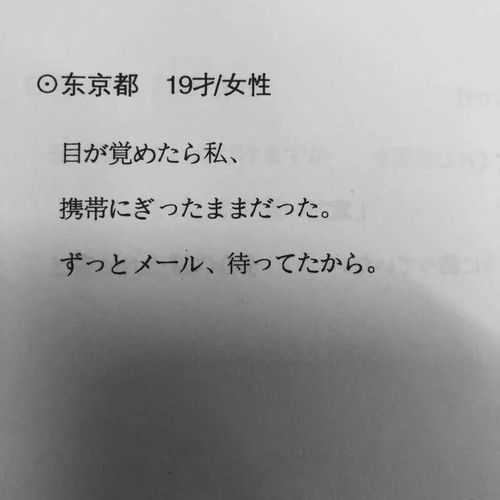 ⊙东京都 19才/女性
目が覚めたら私、
携帯にぎったままだった。
ずっとメール、待ってたから。